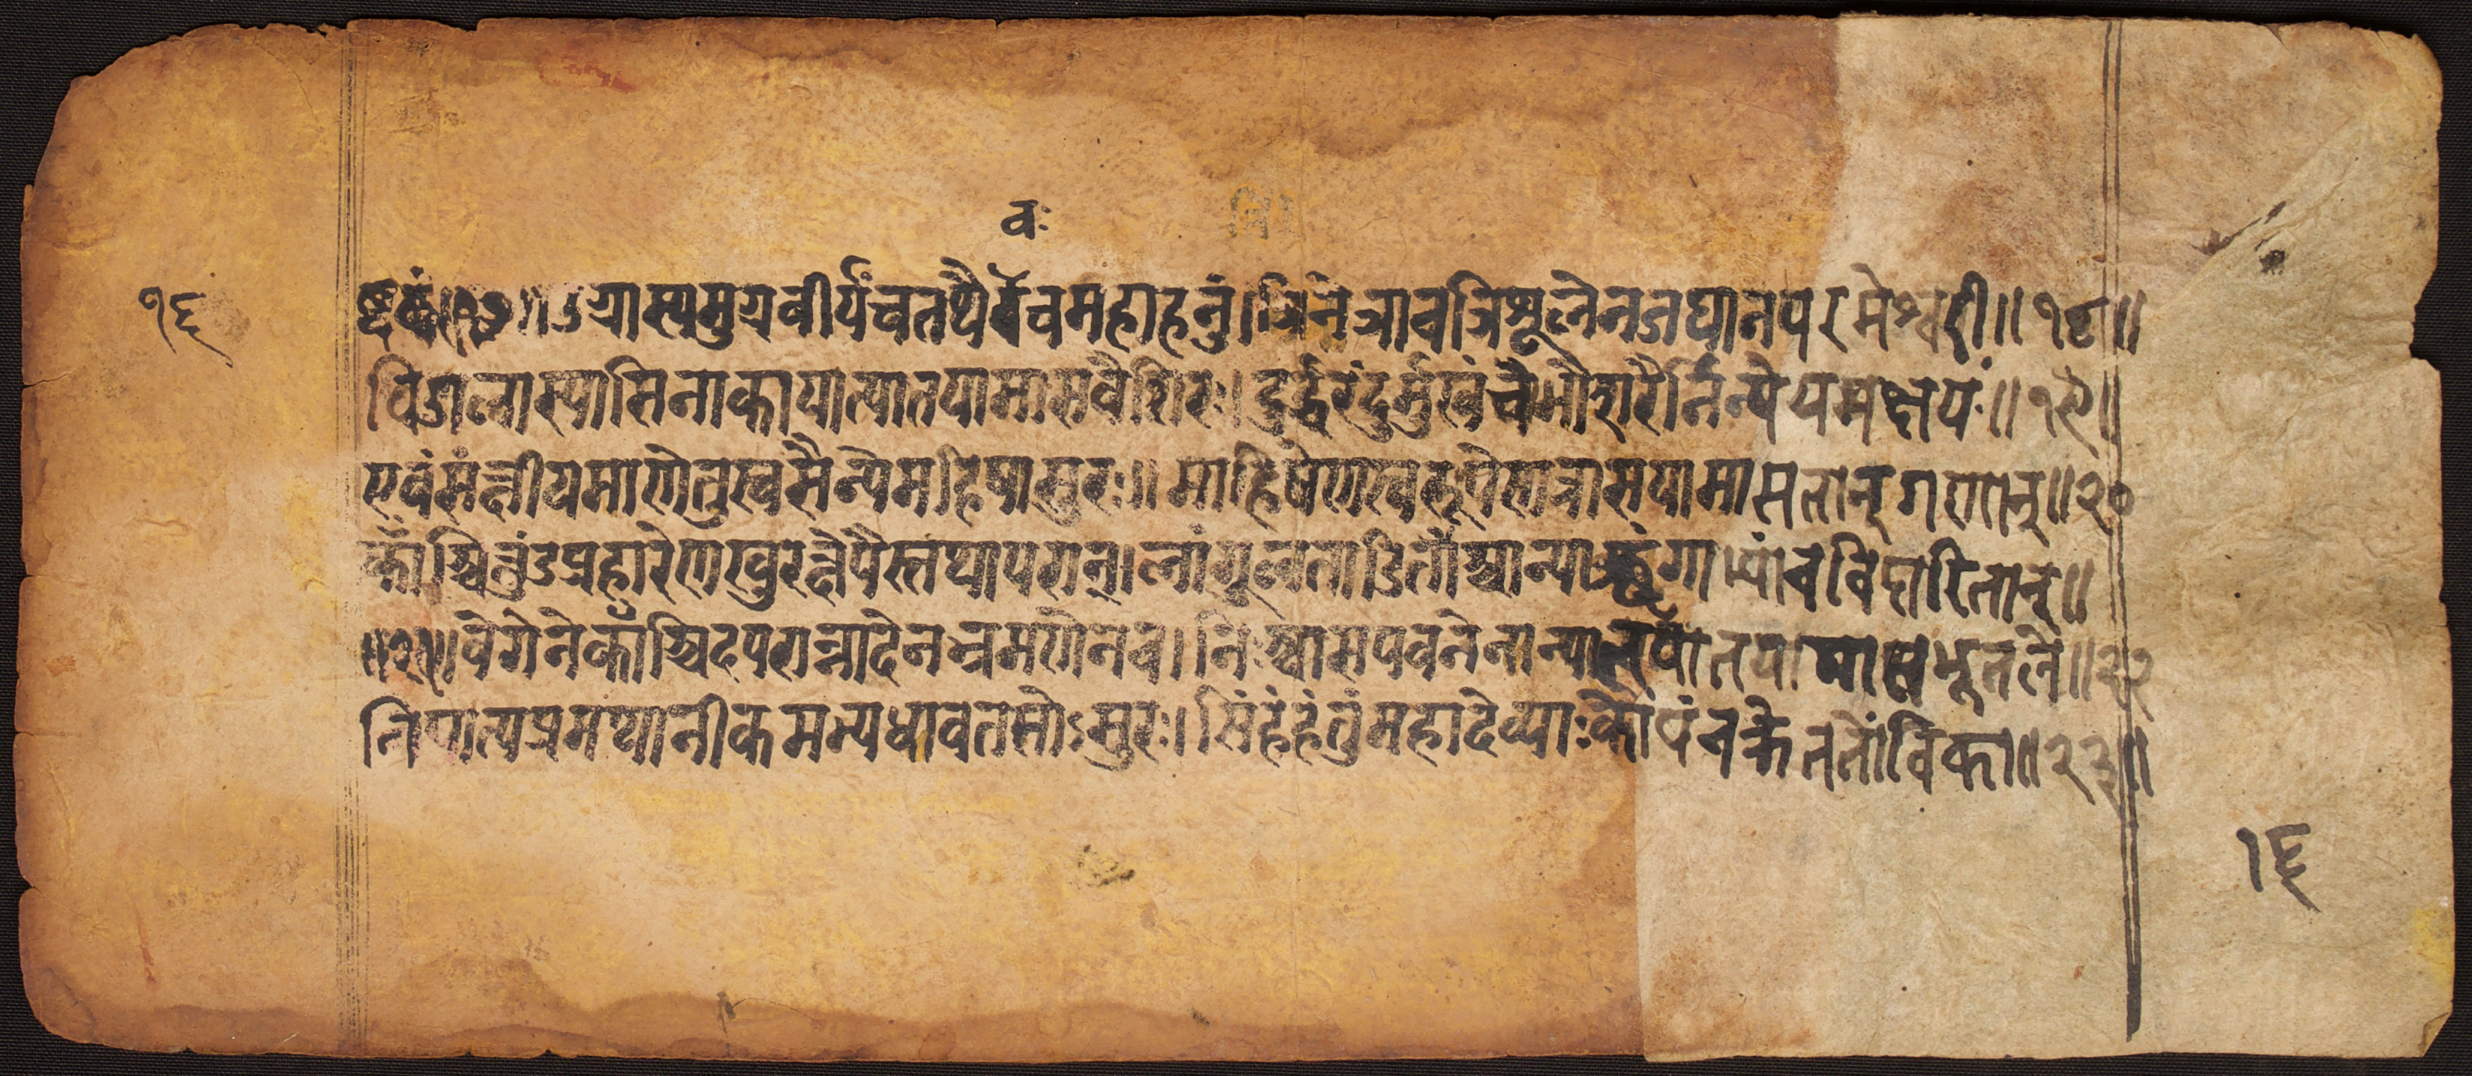 वः
१६
न्धकं॥१७॥उग्रास्यमुग्रवीर्यंचतथैवचमहाहनुं।त्रिनेत्राचत्रिशूलेनजघानपरमेश्वरी॥१८॥
विडालास्यासिनाकायात्पातयामासवैशिरः।दुर्द्धरंदुर्मुखंचोभौशरैर्निन्येयमक्षयं॥१९॥
एवंसंक्षीयमाणेतुस्वसैन्येमहिषासुरः॥माहिषेणस्वरूपेणत्रासयामासतान्गणान्॥२०
काँश्चित्तुंडप्रहारेणखुरक्षेपैस्तथापरान्।लांगूलताडितांश्चान्याञ्छृंगाभ्यांचविदारितान्॥
॥२१॥वेगेनकाँश्चिदपरान्नादेनभ्रमणेनच।निःश्वासपवनेनान्यान्पातयामासभूतले॥२२
निपात्यप्रमथानीकमभ्यधावतसोऽसुरः।सिंहंहंतुंमहादेव्याःकोपंचक्रेततोंविका॥२३॥
१६